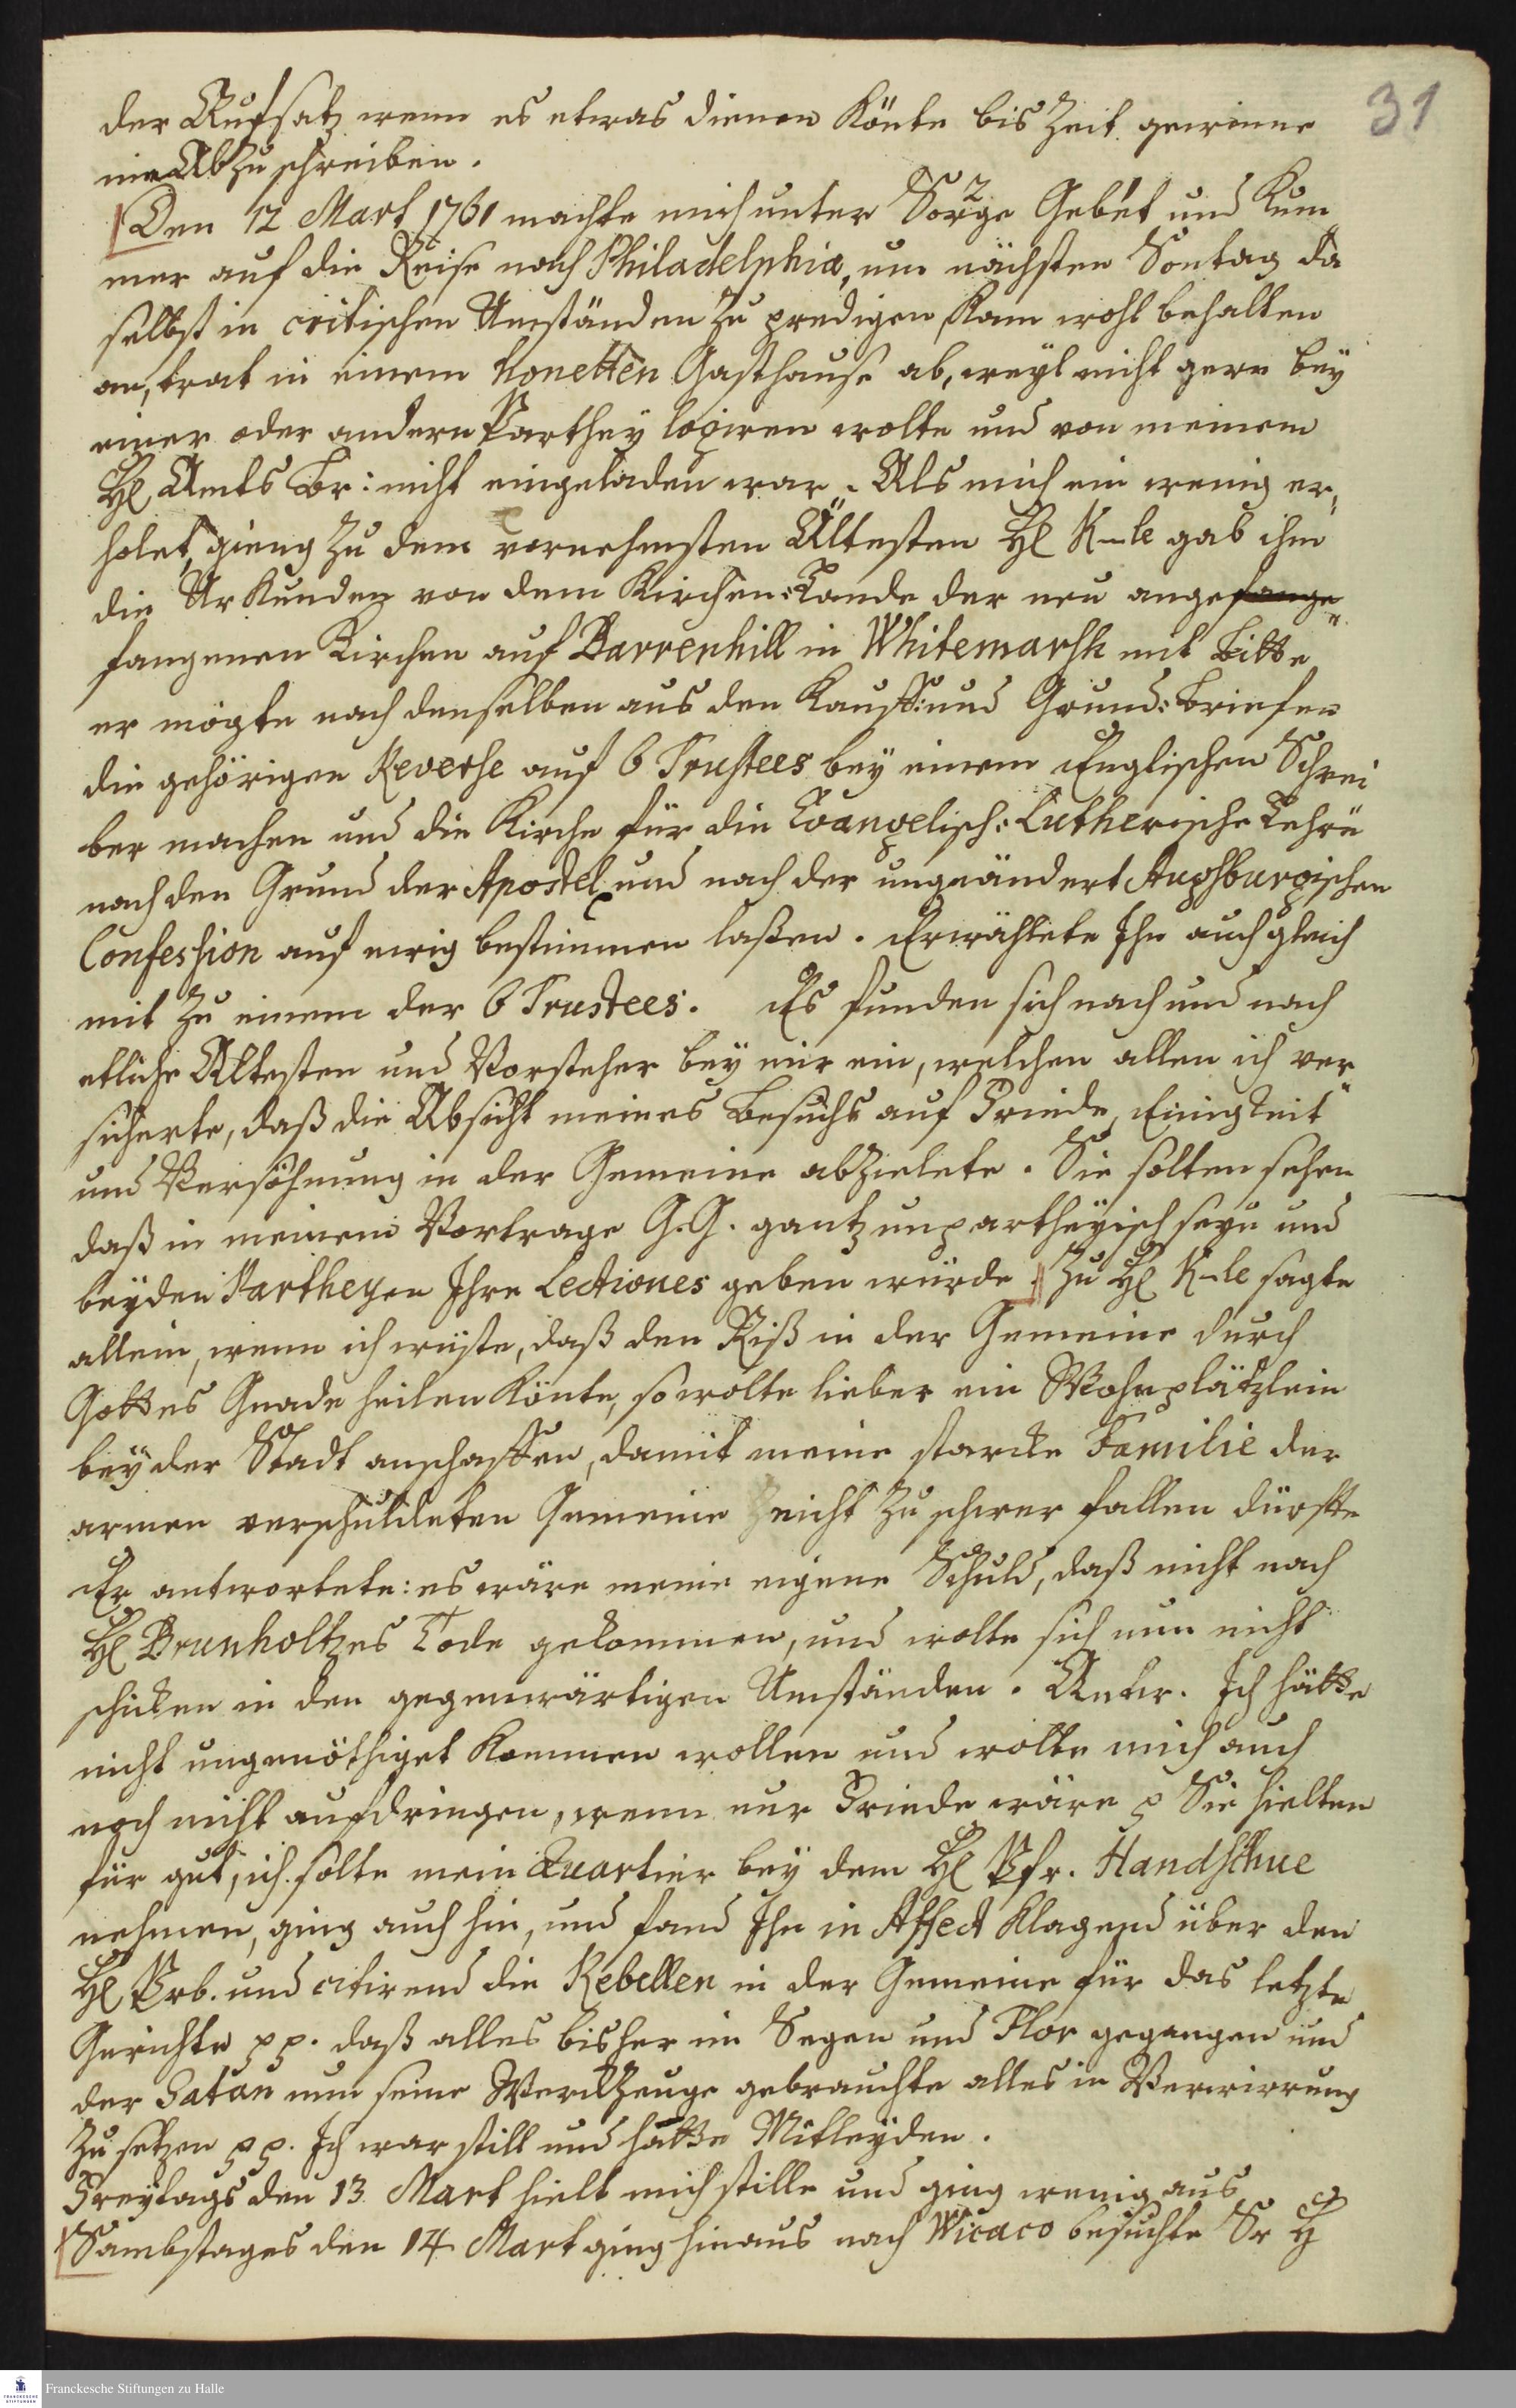 31
der Aufsatz wenn es etwas dienen könte bis Zeit gewinne
abzuschreiben.
Den 12 Mart 1761 machte mich unter Sorge Gebet und Kum
mer auf die Reise nach Philadelphia, um nächsten Sontag da
selbst in critischen Umständen zu predigen, kam wohl behalten
an, trat in einem honetten Gasthause ab, weyl nicht gern bey
einer oder andern Parthey logiren wolte und von meinem
H Amts Br: nicht eingeladen war. Als mich ein wenig er,
holet, gieng zu dem vornehmsten Ältesten H K-le gab ihm
die Urkunden von dem Kirchen-Lande der neu angefange
fangenen Kirchen auf Barrenhill in Whitemarsh mit Bitte
er mögte nach denselben aus den Kauff: und Grund: Briefen
die gehörigen Reverse auf 6 Trustees bey einem Englischen Schrei
ber machen und die Kirche für die Evangelisch: Lutherische Lehre
nach den Grund der Apostel und nach der ungeändert Augsburgischen
Confession auf ewig bestimmen laßen. Erwählete Ihn auch gleich
mit zu einem der 6 Trustees. Es funden sich nach und nach
etliche Altesten und Vorsteher bey mir ein, welchen allen ich ver
sicherte, daß die Absicht meines Besuchs auf Friede, Einigkeit
und Versöhnung in der Gemeine abzielete. Sie solten sehen
daß in meinem Vortrage G. G. gantz unpartheyisch seyn und
beyden Partheyen Ihre Lectiones geben würde. Zu H K-le sagte
allein, wenn ich wüste, daß den Riß in der Gemeine durch
Gottes Gnade heilen könte, so wolte lieber ein Wohnplätzlein
bey der Stadt anschaffen, damit meine starcke Familie der
armen verschuldeten Gemeine nicht zu schwer fallen dürffte
Er antwortete: es wäre meine eigene Schuld, daß nicht nach
H Brunholtzes Tode gekommen, und wolte sich nun nicht
schicken in den gegenwärtigen Umständen. Antw. Ich hätte
nicht ungenöthiget kommen wollen und wolte mich auch
noch nicht aufdringen, wenn nur Friede wäre p Sie hielten
für gut, ich solte mein Quartier bey dem H Pfr. Handschue
nehmen, ging auch hin, und fand Ihn in Affect klagend über den
H Prb. und citirend die Rebellen in der Gemeine für das letzte
Gerichte pp. daß alles bisher im Segen und Flor gegangen und
der Satan nun seine Werckzeuge gebrauchte alles in Verwirrung
zu setzen pp. Ich war still und hatte Mitleyden.
Freytags den 13. Mart hielt mich stille und ging wenig aus
Sambstages den 14 Mart ging hinaus nach Wicaco besuchte Sr H
Franckesche Stiftungen zu Halle